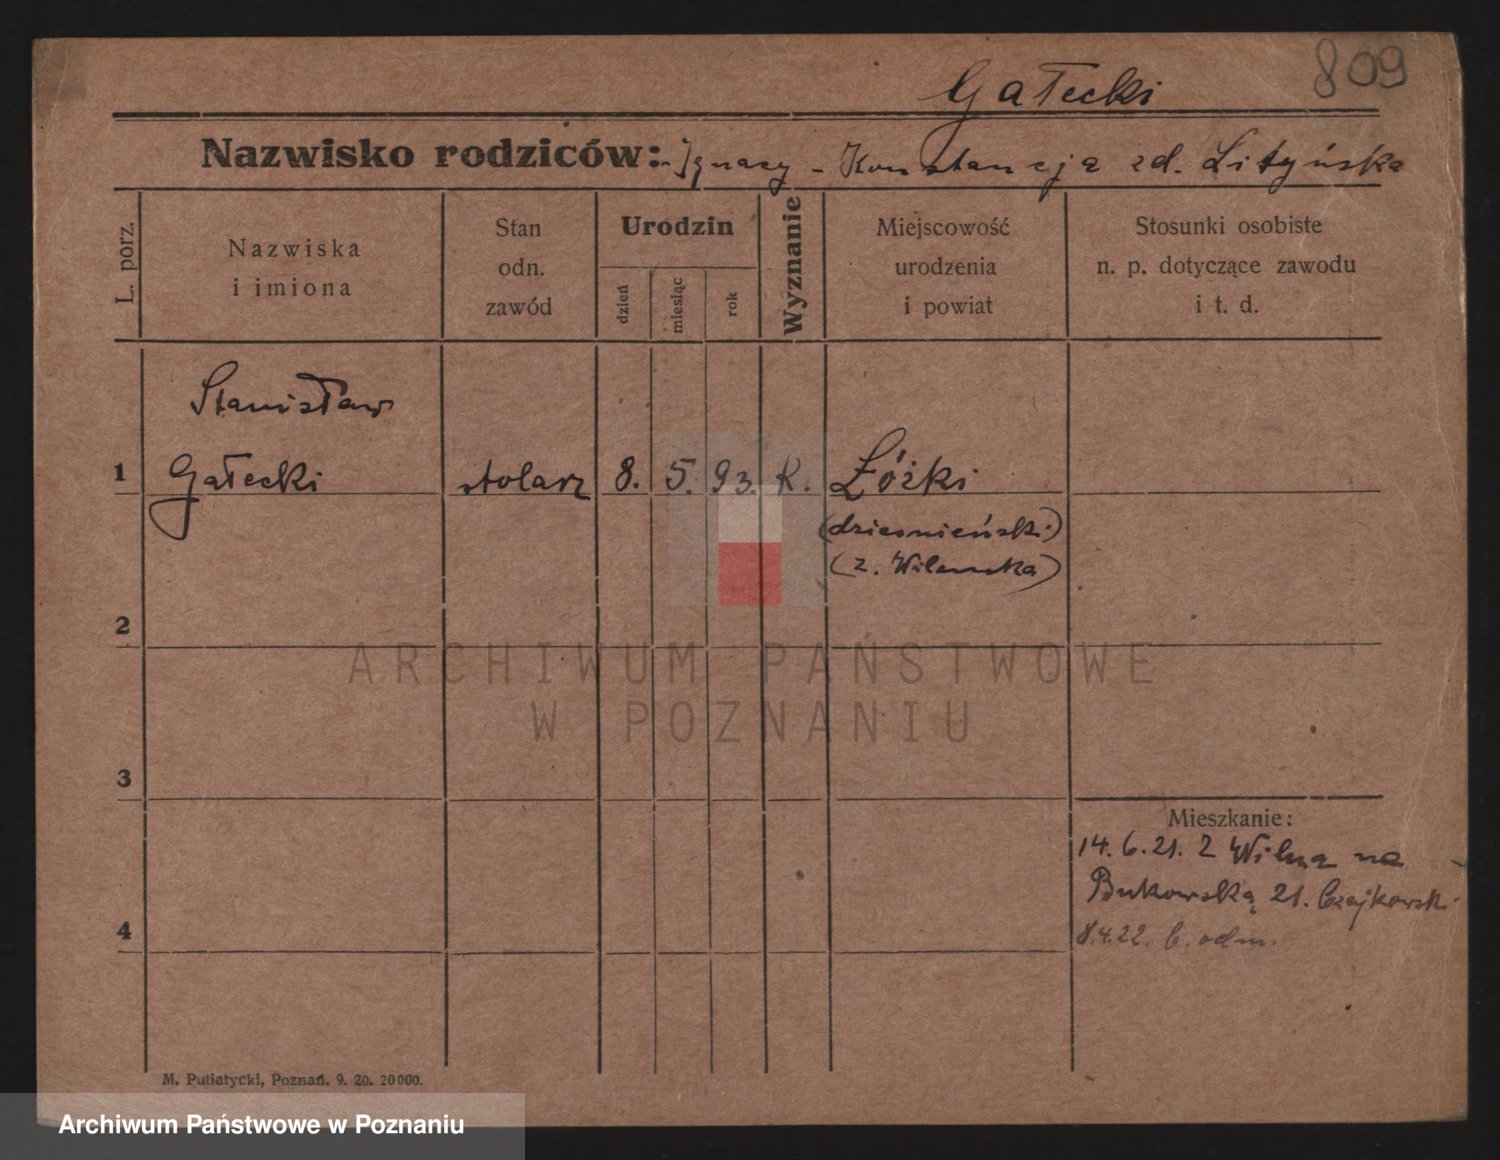 809
Gałecki
Nazwisko rodziców: Ignacy - Konstancja zd. Lityńska
L. porz.
Nazwiska
i imiona
Stan
odn.
zawód
Urodzin
dzień
miesiąc
rok
Wyznanie
Miejscowość
urodzenia
i powiat
Stosunki osobiste
n. p. dotyczące zawodu
i t. d.
Stanisław
1 Gałecki stolarz 8. 5. 93. K. Łóżki
(dzieśnieński)
(z. Wileńska)
2
ARCHIWUM PAŃSTWOWE
W POZNANIU
3
Mieszkanie:
14.6.21. Z Wilna na
Bukowską 21. Czajkowski
4
8.4.22. b. odm.
M. Putiatycki, Poznań. 9. 20. 20000.
Archiwum Państwowe w Poznaniu